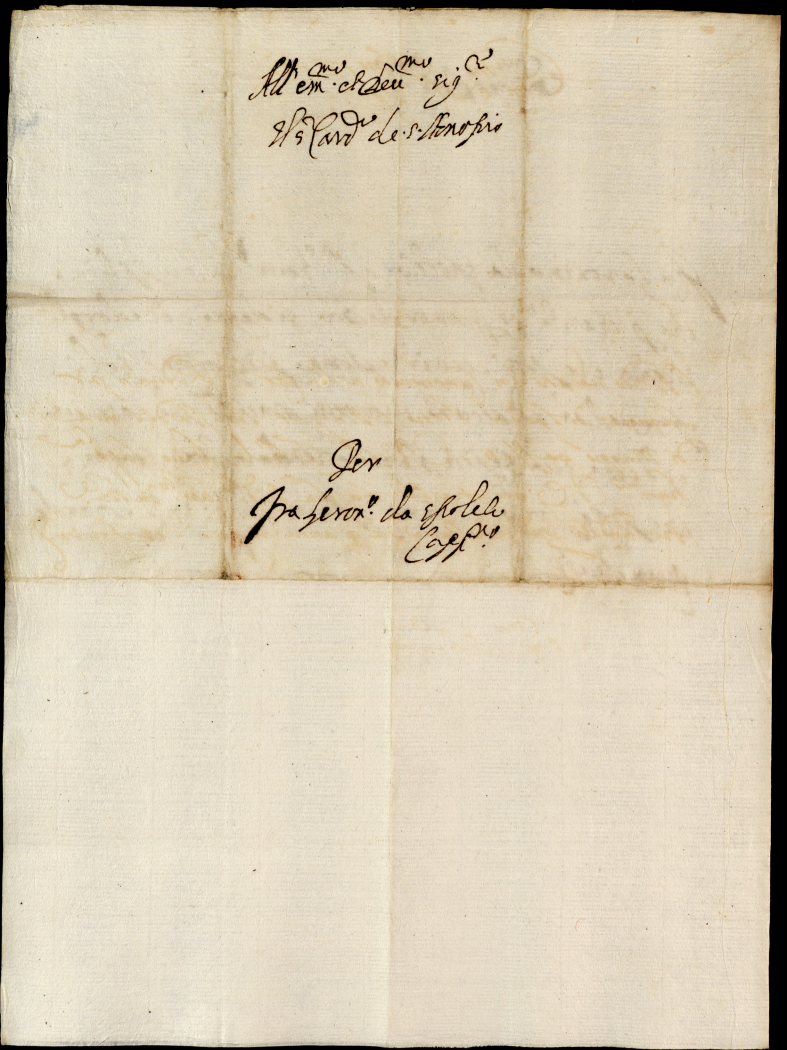 All' em.mo et Reu.mo sig.re
Il s. Card.le de s. Honofrio
Per
fra Geron.o da Spoleti
Capp.no